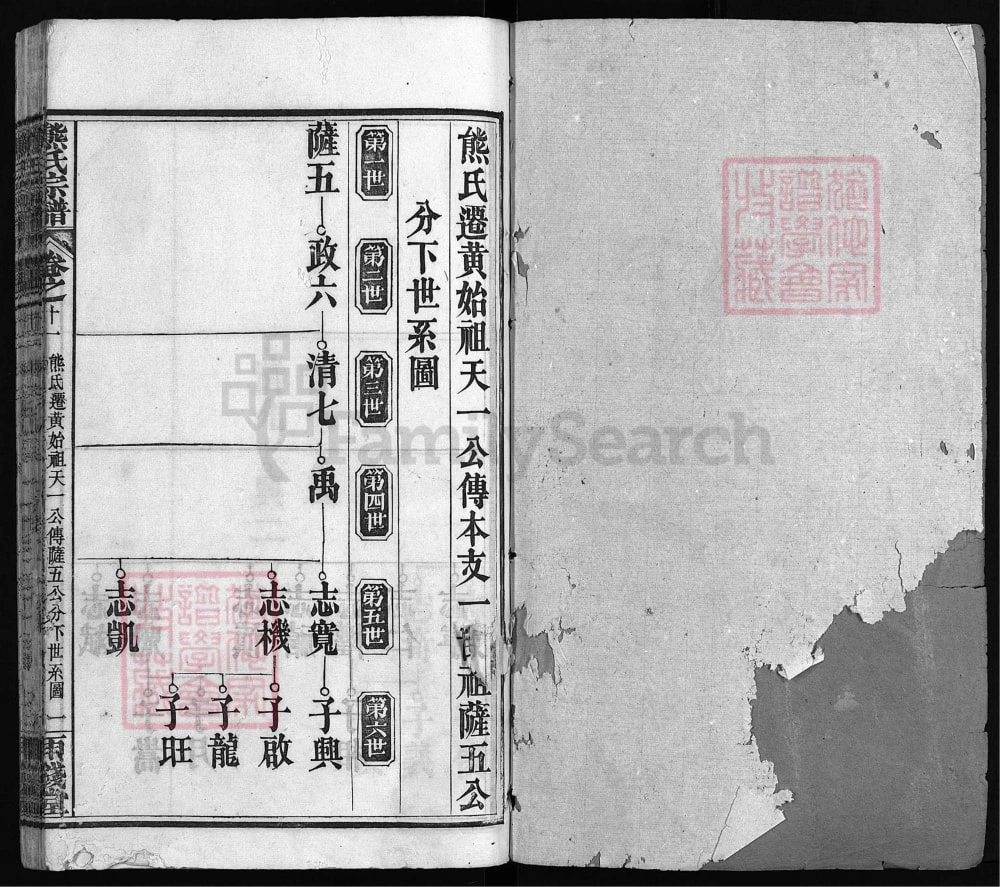 熊氏遷黃始祖天一公傳本支一氏祖薩五公
分下世系圖
第一世
第二世
第三世
第四世
第五世
第六世
薩五
政六
清七
禹
志寬
子興
志機
子啟
子龍
子旺
志凱
熊氏宗譜
卷之十一
熊氏遷黃始祖天一公傳薩五公分下世系圖
FamilySearch
譜學會